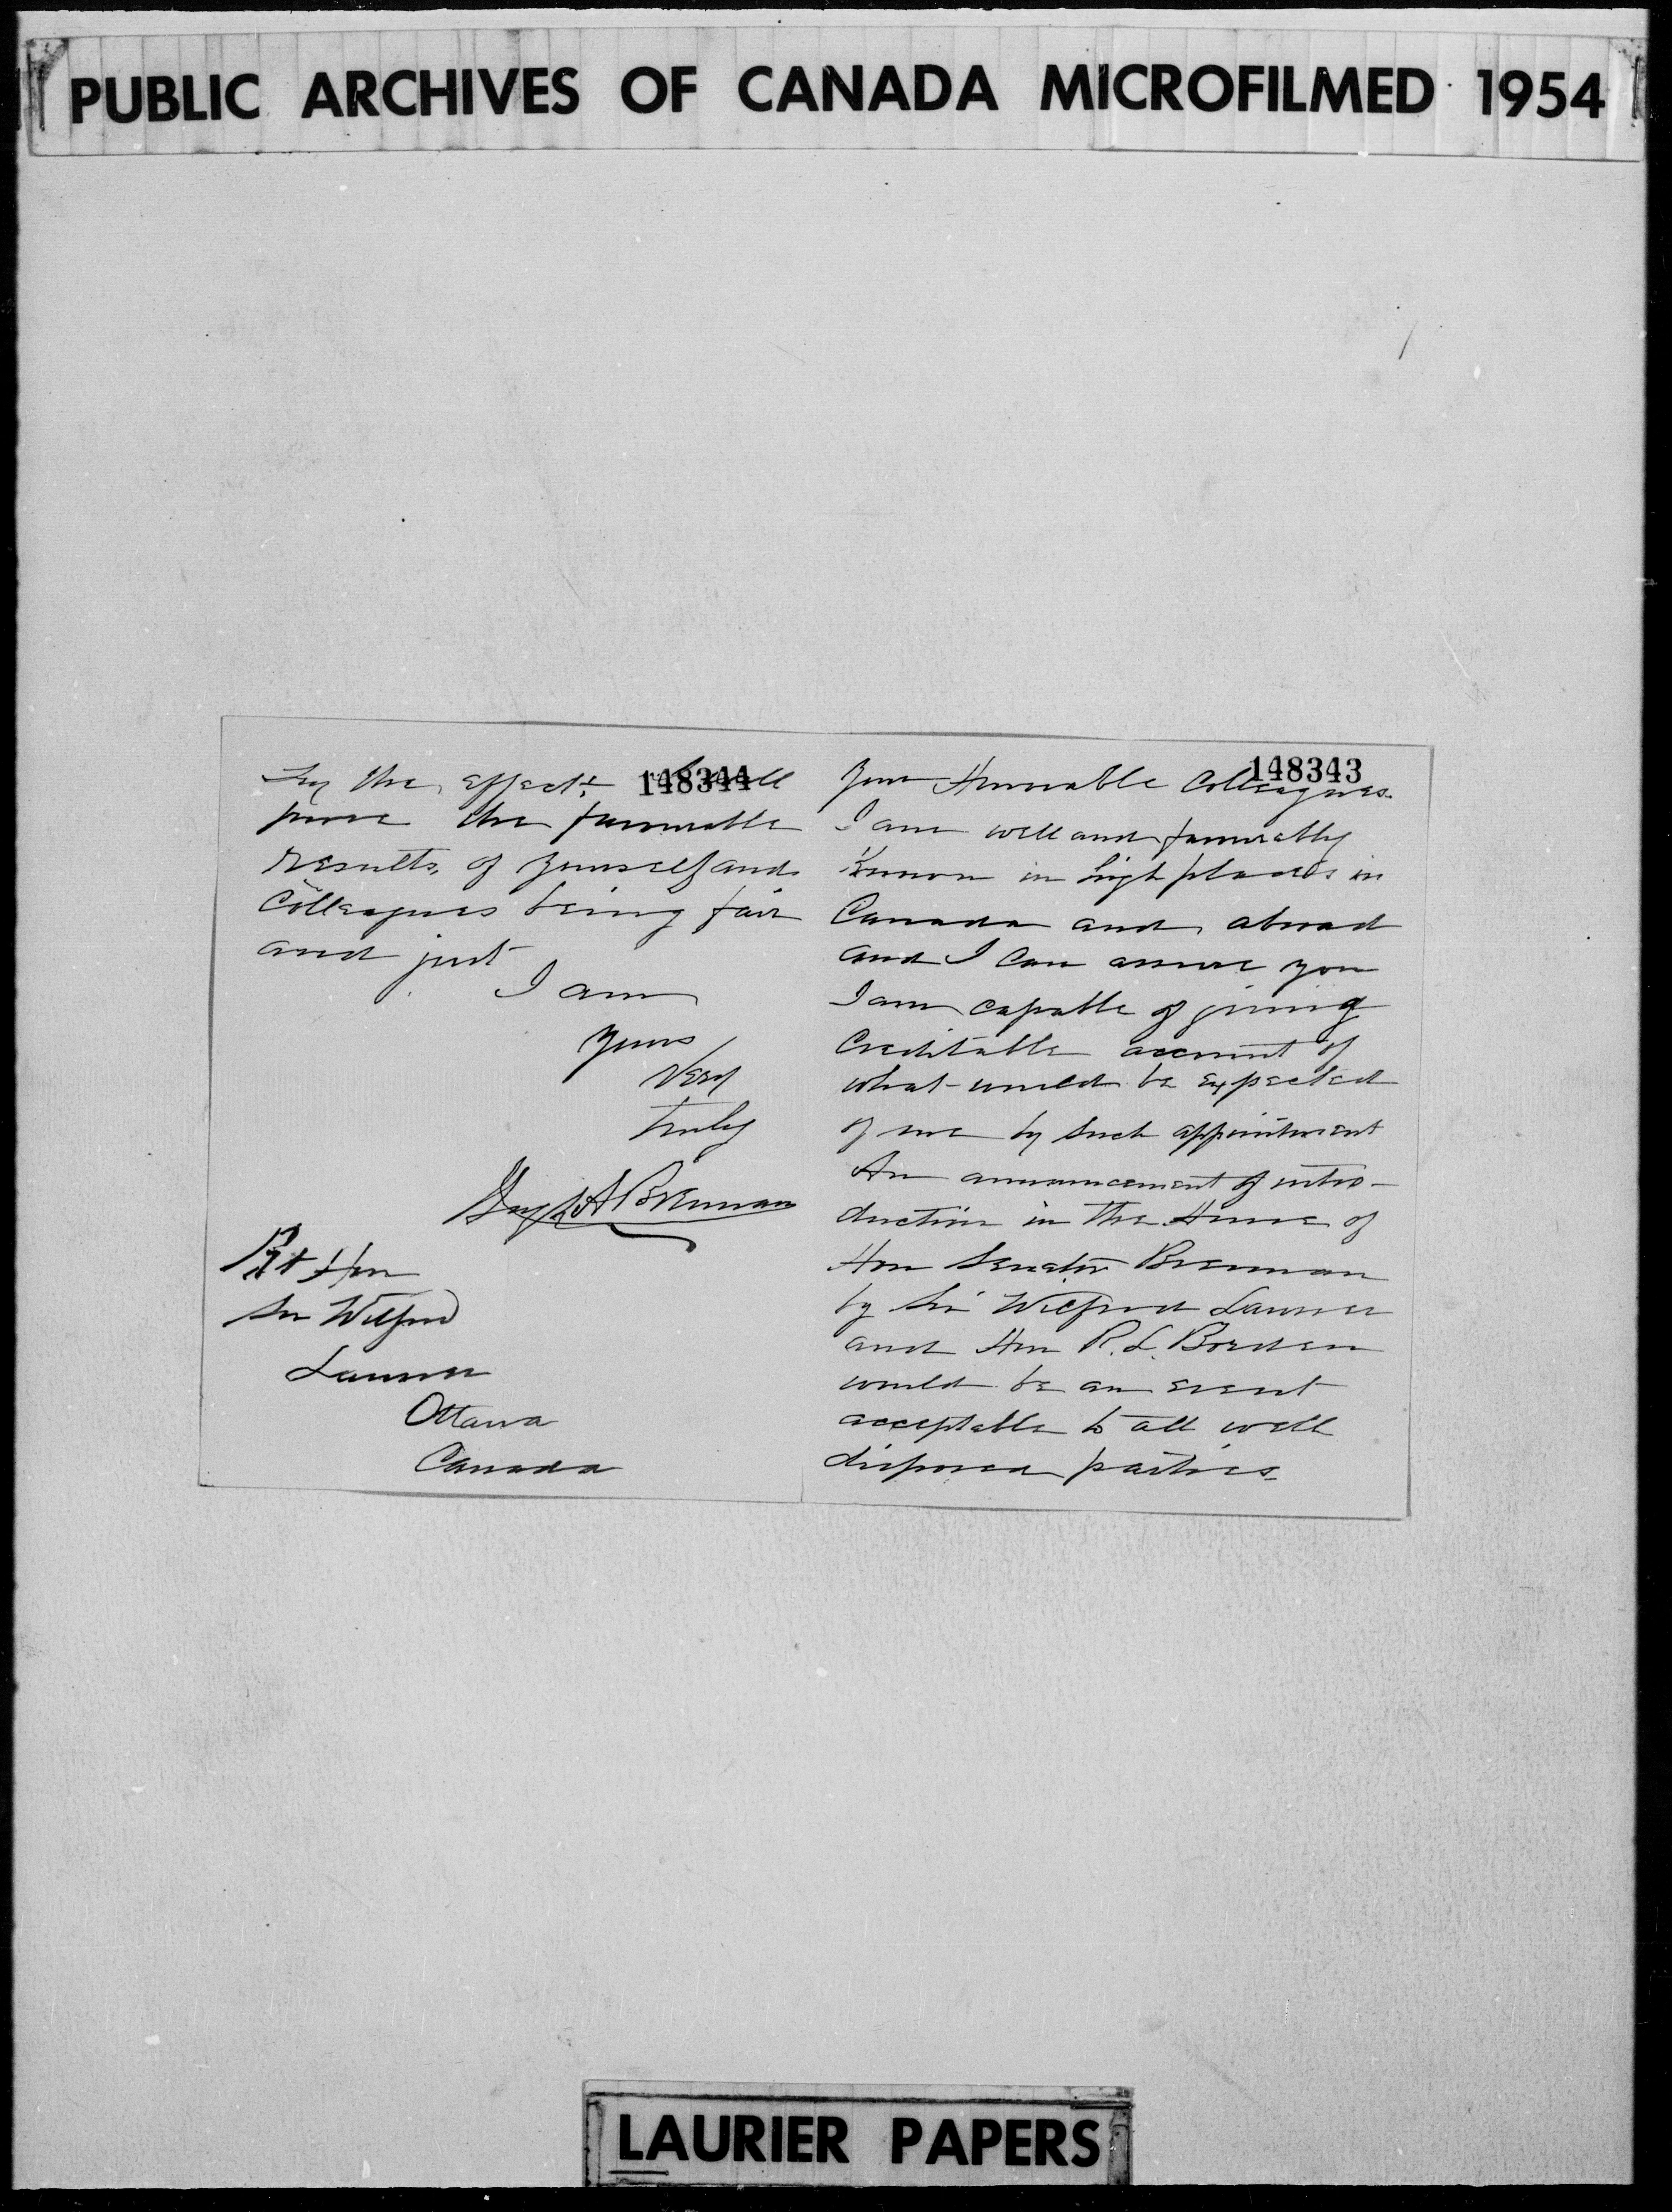 PUBLIC ARCHIVES OF CANADA MICROFILMED 1954
148343
Your Honorable Colleagues.
I am well and favourably
Known in high places in
Canada and abroad
and I can assure you
I am capable of giving
Creditable account of
what would be expected
of me by such appointment
An announcement of intro-
duction in the House of
Hon Senator Brennan
by Sir Wilfred Laurier
and Hon R. L. Borden
would be an event
acceptable to all well
disposed parties.
148344
Try the effect, it will
prove the favourable
results, of yourself and
Colleagues being fair
and just
I am
Yours
Very
truly
Hugh A Brennan
Rt Hon
Sir Wilfred
Laurier
Ottawa
Canada
LAURIER PAPERS